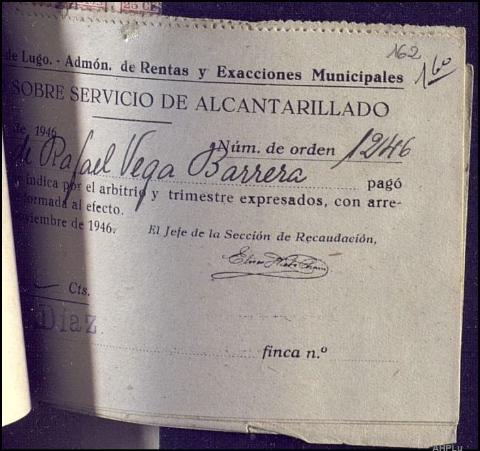 25 C
162
16º
de Lugo. - Admón. de Rentas y Exacciones Municipales
SOBRE SERVICIO DE ALCANTARILLADO
de 1946
Núm. de orden 1246
de Rafael Vega Barrera pagó
indica por el arbitrio y trimestre expresados, con arre-
formada al efecto.
oviembre de 1946.
El Jefe de la Sección de Recaudación,
Cts.
Díaz
finca n.º
AHPLu